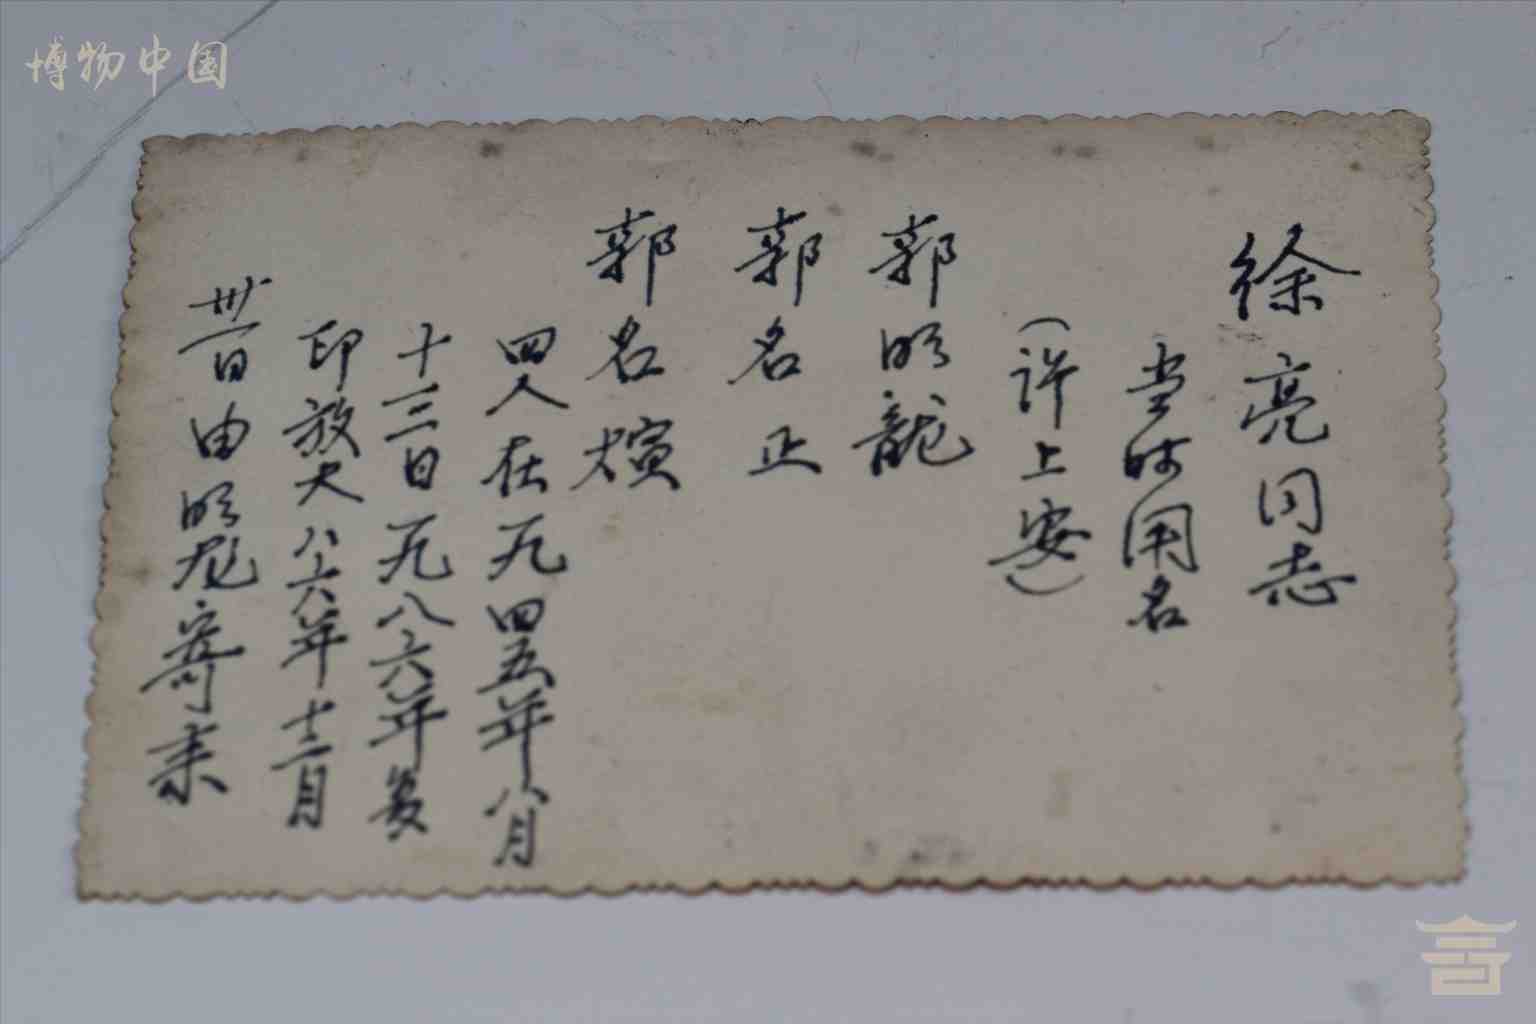 博物中国
徐亮同志
当时用名
（许上安）
郭明龍
郭名正
郭名煐
四人在一九四五年八月
十三日一九八六年复
印放大八六年十二月
卅一日由明龙寄来